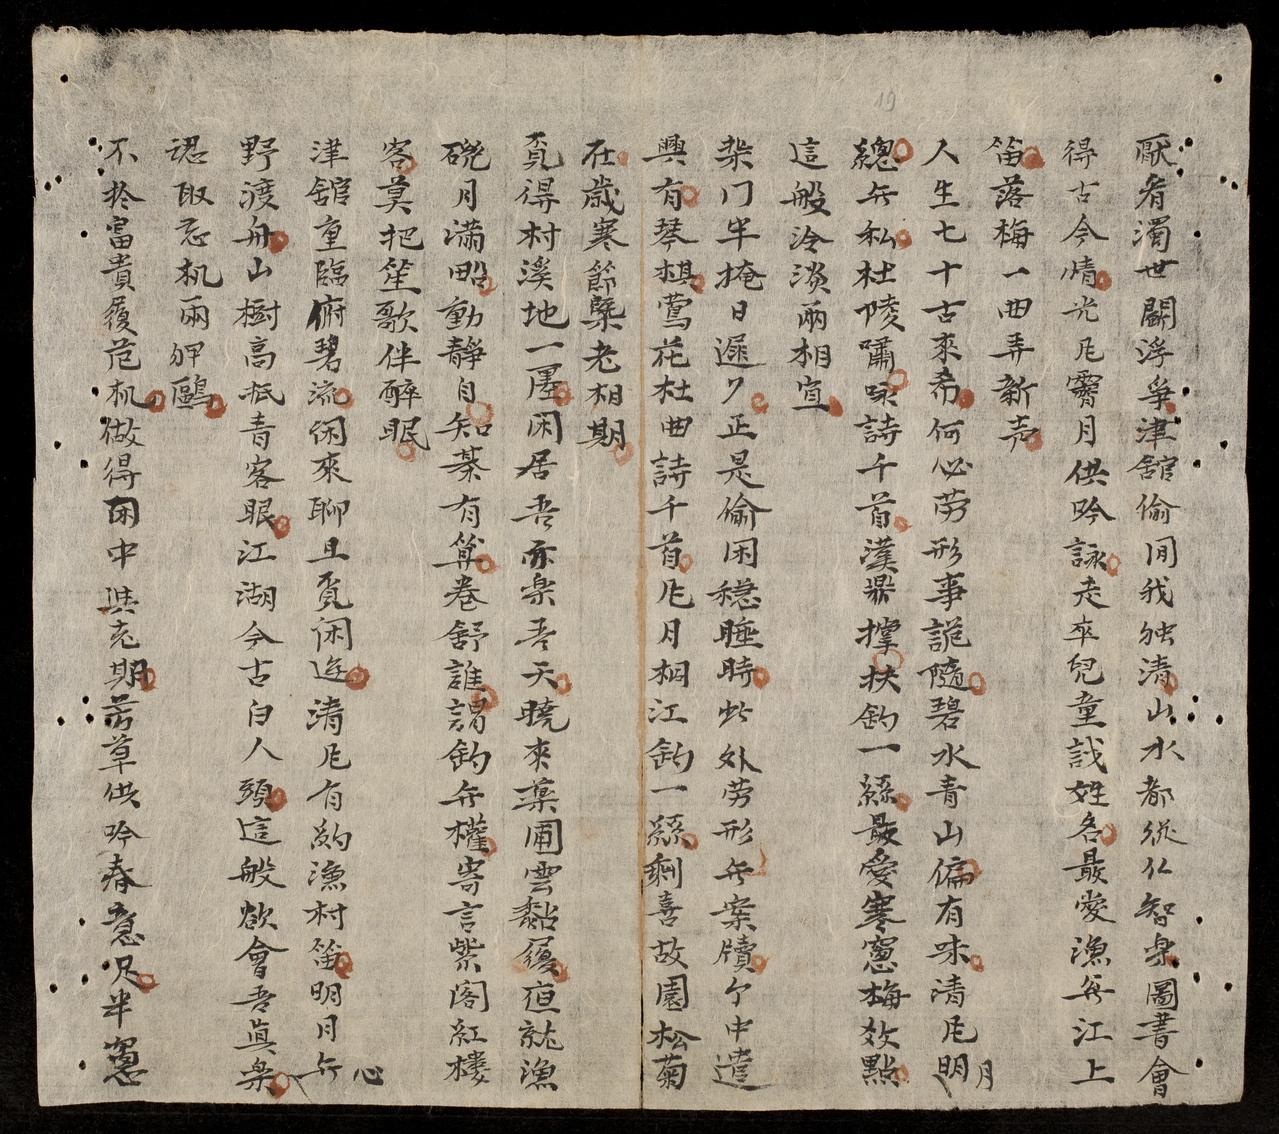 厭看濁世鬪浮爭津舘偷閒我独清山水都從仁智楽圖書會
得古今情光凮霽月供吟詠走卒兒童識姓名最愛漁舟江上
笛落梅一曲弄新声
人生七十古來希何必劳形事詭隨碧水青山偏有味清凮明月
總無私杜陵嘯咏詩千首漢鼎撑扶釣一絲最愛寒窓梅效點
這般冷淡兩相宜
柴门半掩日遲々正是偷閑穏睡時此外劳形無案牘个中遣
興有琴棋鶯花杜曲詩千首凮月桐江釣一絲剩喜故園松菊
在歳寒節槩老相期
覔得村溪地一廛閑居吾亦楽吾天曉來藥圃雲黏履夜就漁
磯月滿船動静自知棊有算卷舒誰謂釣無權寄言紫阁紅樓
客莫把笙歌伴醉眠
津舘重臨俯碧流倘來聊且覔閑遊清凮有約漁村笛明月無心
野渡舟山樹高低青客眼江湖今古白人頭這般欲會吾眞楽
認取忘机兩狎鷗
不於富貴履危机做得閑中共老期芳草供吟春意足半窓